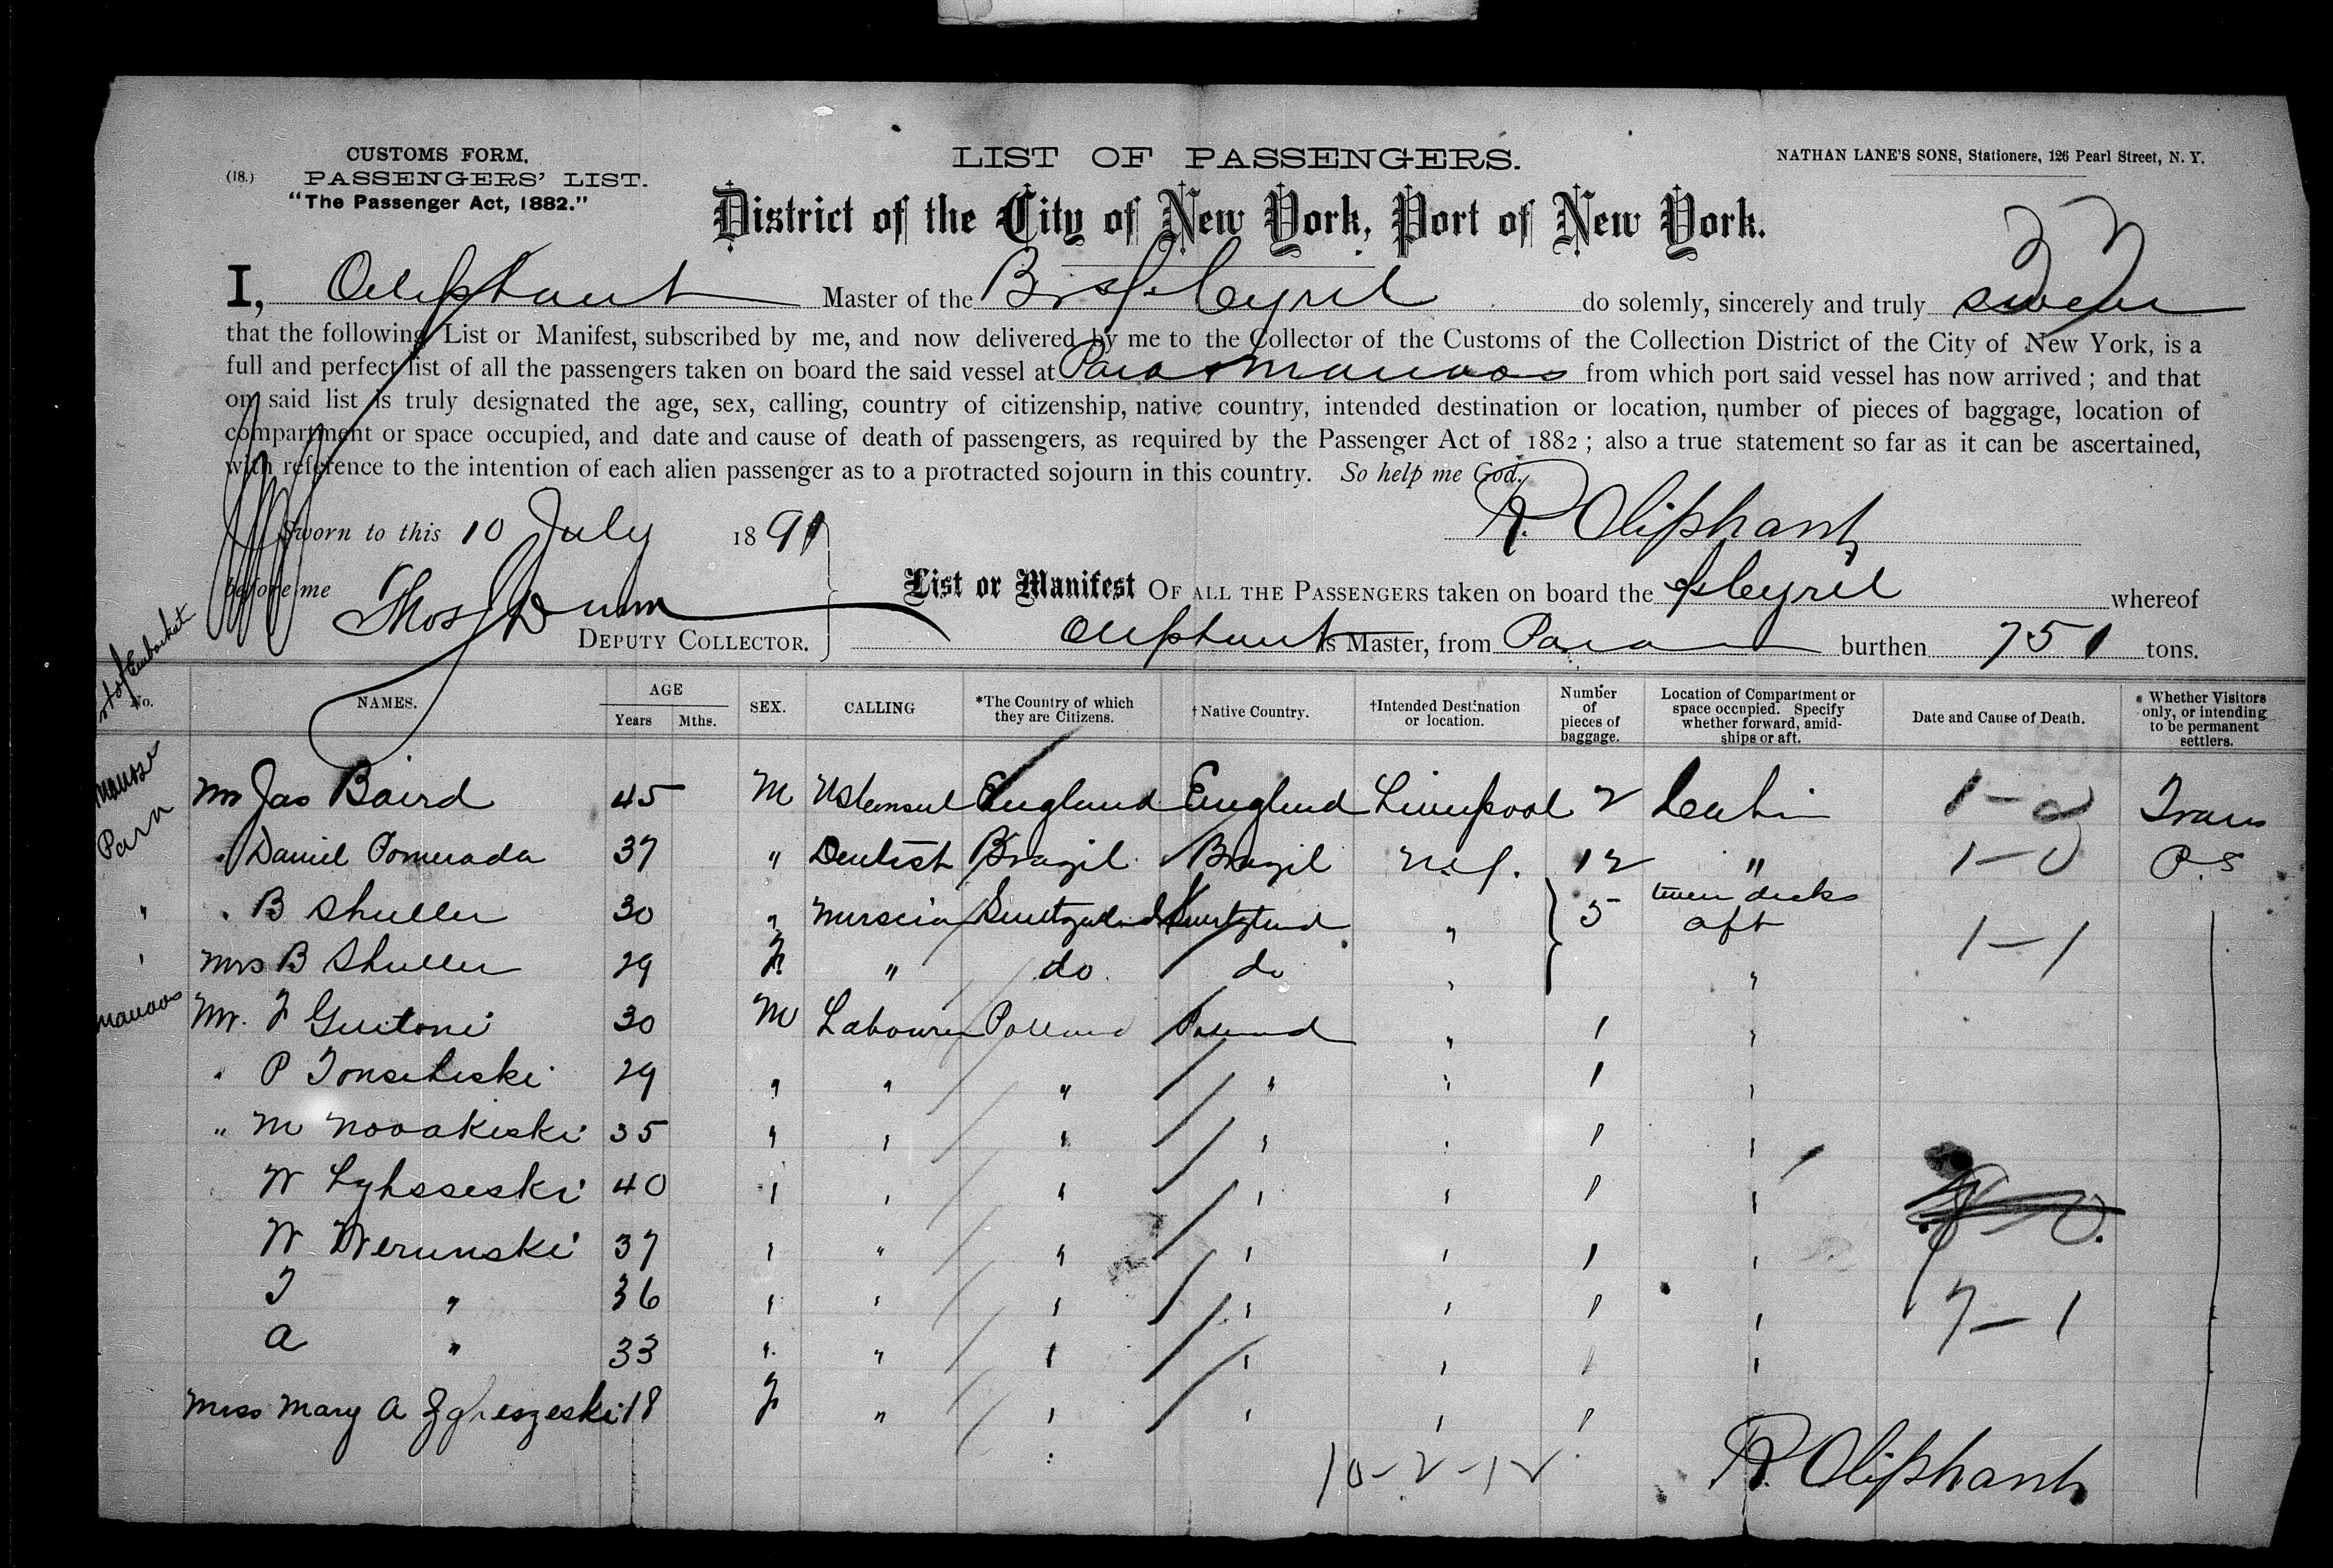 CUSTOMS FORM.
(18.) PASSENGERS' LIST.
"The Passenger Act, 1882."
LIST OF PASSENGERS.
NATHAN LANE'S SONS, Stationers, 126 Pearl Street, N. Y.
District of the City of New York, Port of New York.
I, Oliphant Master of the Br SS Cyril do solemnly, sincerely and truly swear
that the following List or Manifest, subscribed by me, and now delivered by me to the Collector of the Customs of the Collection District of the City of New York, is a
full and perfect list of all the passengers taken on board the said vessel at Para & Manaos from which port said vessel has now arrived; and that
on said list is truly designated the age, sex, calling, country of citizenship, native country, intended destination or location, number of pieces of baggage, location of
compartment or space occupied, and date and cause of death of passengers, as required by the Passenger Act of 1882; also a true statement so far as it can be ascertained,
with reference to the intention of each alien passenger as to a protracted sojourn in this country. So help me God.
R. Oliphant
Sworn to this 10 July 1891
before me Thos Dunn
DEPUTY COLLECTOR.
List or Manifest OF ALL THE PASSENGERS taken on board the SS Cyril whereof
Oliphant is Master, from Para burthen 751 tons.
Port of Embarkat
No. NAMES. AGE Years Mths. SEX. CALLING *The Country of which they are Citizens. †Native Country. †Intended Destination or location. Number of pieces of baggage. Location of Compartment or space occupied. Specify whether forward, amidships or aft. Date and Cause of Death. Whether Visitors only, or intending to be permanent settlers.
Manaos Mr Jas Baird 45 M US Consul England England Liverpool 2 Cabin 1-0 Trans
Para " Daniel Pomerada 37 " Dentist Brazil Brazil N.Y. 12 " 1-0 P.S
" " B Shuller 30 " Switzerland Switzerland " 5 tween decks aft 1-1
" Mrs B Shuller 29 F " do do " "
Manaos Mr. F Guitoni 30 M Labourer Poland Poland " 1 "
" P Tonseliski 29 " " " " " 1 "
" M Novakiski 35 " " " " " 1 "
W Lyhsseski 40 " " " " " 1 "
W Werunski 37 " " " " " 1 "
T " 36 " " " " " 1 " 7-1
A " 33 " " " " " 1 "
Miss Mary A Zgheszeski 18 F " " " " 1
10-2-12
R. Oliphant